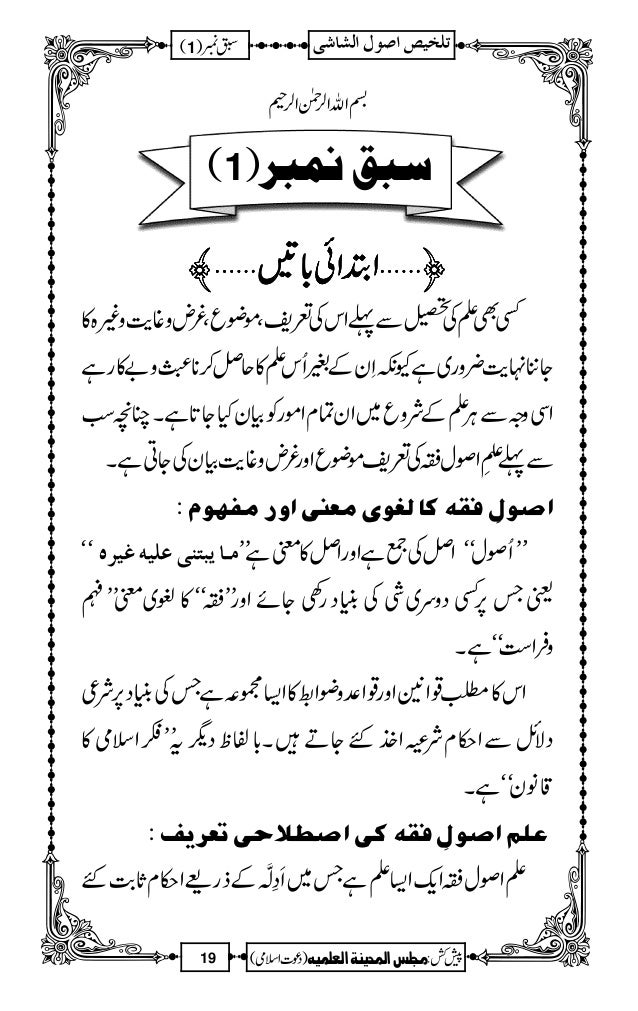 تلخیص اصول الشاشی
سبق نمبر (1)
بسم اللہ الرحمٰن الرحیم
سبق نمبر (1)
......ابتدائی باتیں......
کسی بھی علم کی تحصیل سے پہلے اس کی تعریف، موضوع، غرض وغایت وغیرہ کا
جاننا نہایت ضروری ہے کیونکہ اِن کے بغیر اُس علم کا حاصل کرنا عبث و بے کار ہے
اسی وجہ سے ہر علم کے شروع میں ان تمام امور کو بیان کیا جاتا ہے۔ چنانچہ سب
سے پہلے علمِ اصول فقہ کی تعریف موضوع اور غرض وغایت بیان کی جاتی ہے۔
اصولِ فقہ کا لغوی معنی اور مفہوم :
’’اُصول‘‘ اصل کی جمع ہے اور اصل کا معنی ہے’’ما یبتنی علیه غیره ‘‘
یعنی جس پر کسی دوسری شی کی بنیاد رکھی جائے اور’’فقہ‘‘ کا لغوی معنی’’ فہم
وفراست‘‘ ہے۔
اس کا مطلب قوانین اور قواعد وضوابط کا ایسا مجموعہ ہے جس کی بنیاد پر شرعی
دلائل سے احکام شرعیہ اخذ کئے جاتے ہیں۔ بالفاظ دیگر یہ’’فکر اسلامی کا
قانون‘‘ ہے۔
علم اصولِ فقہ کی اصطلاحی تعریف :
علم اصول فقہ ایک ایسا علم ہے جس میں اَدِلَّہ کے ذریعے احکام ثابت کئے
پیش کش: مجلس المدینة العلمیه (دعوت اسلامی)
19